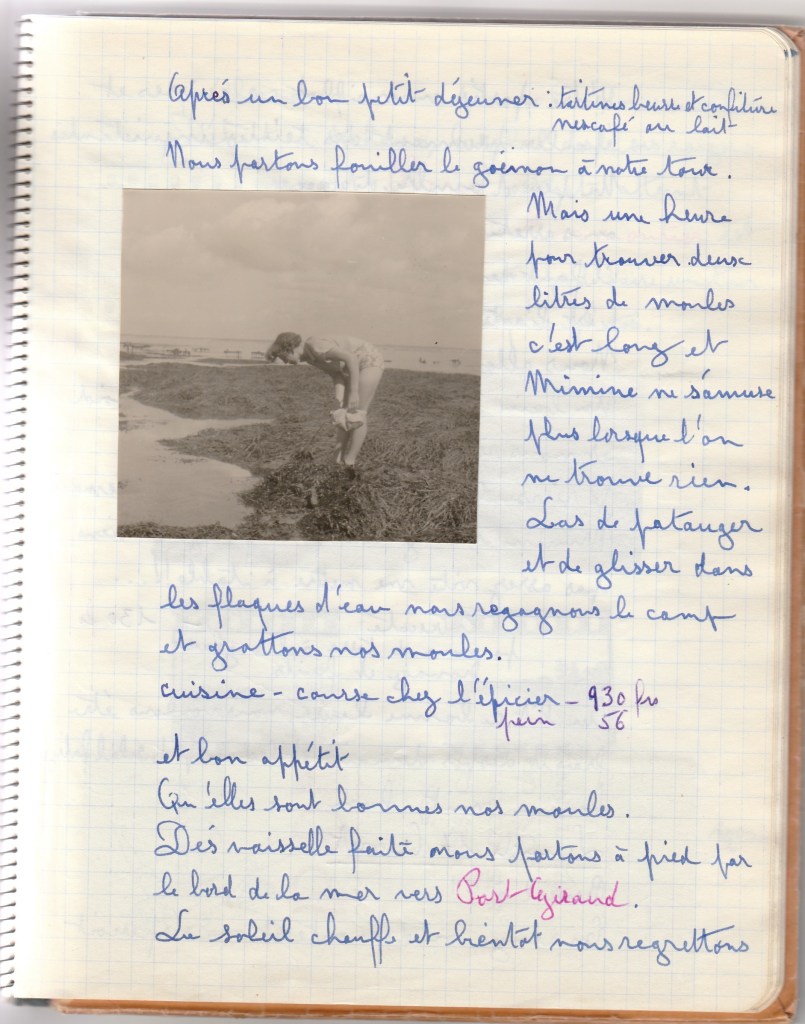 Après un bon petit déjeuner : tartines beurre et confiture
nescafé au lait
Nous partons fouiller le goëmon à notre tour.
Mais une heure
pour trouver deux
litres de moules
c'est long et
Mimine ne s'amuse
plus lorsque l'on
ne trouve rien.
Las de patauger
et de glisser dans
les flaques d'eau nous regagnons le camp
et grattons nos moules.
cuisine - course chez l'épicier - 930 frs
pain 56
et bon appétit
Qu'elles sont bonnes nos moules.
Dès vaisselle faite nous partons à pied par
le bord de la mer vers Port Giraud.
Le soleil chauffe et bientôt nous regrettons